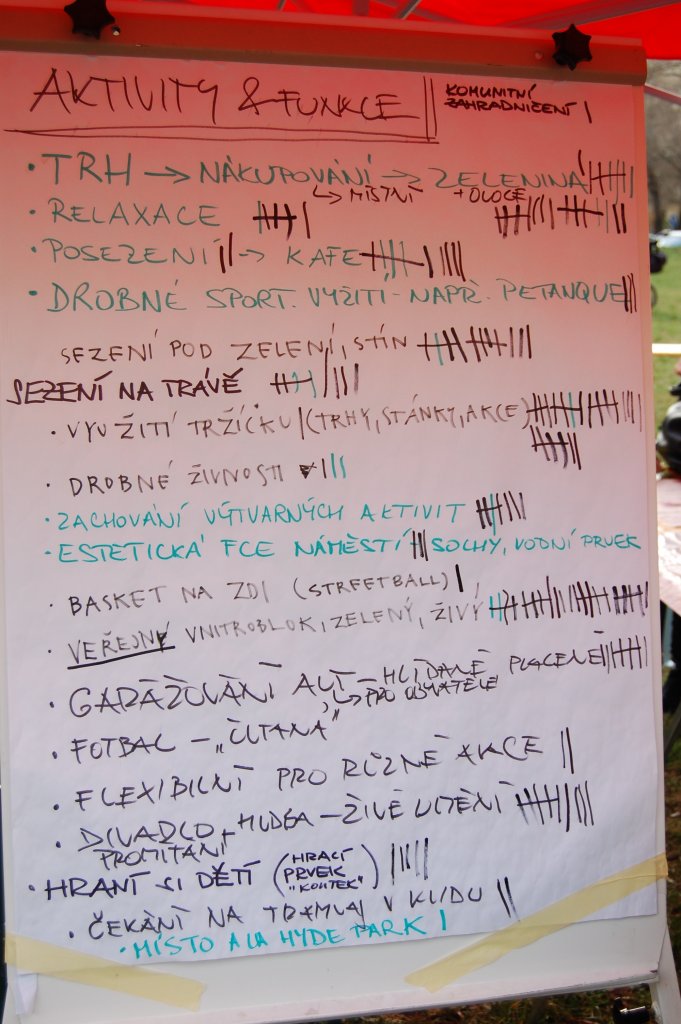 AKTIVITY & FUNKCE
KOMUNITNÍ
ZAHRADNIČENÍ
• TRH → NAKUPOVÁNÍ → ZELENINA
↳ MÍSTNÍ + OVOCE
• RELAXACE
• POSEZENÍ → KAFE
• DROBNÉ SPORT. VYŽITÍ - NAPŘ. PETANQUE
SEZENÍ POD ZELENÍ, STÍN
SEZENÍ NA TRÁVĚ
• VYUŽITÍ TRŽÍČKU (TRHY, STÁNKY, AKCE)
• DROBNÉ ŽIVNOSTI
• ZACHOVÁNÍ VÝTVARNÝCH AKTIVIT
• ESTETICKÁ FCE NÁMĚSTÍ SOCHY, VODNÍ PRVEK
• BASKET NA ZDI (STREETBALL)
• VEŘEJNÝ VNITROBLOK, ZELENÝ, ŽIVÝ
• GARÁŽOVÁNÍ AUT - HLÍDANÉ PLACENÉ
↳ PRO OBYVATELE
• FOTBAL -
• FLEXIBILNÍ PRO RŮZNÉ AKCE
• DIVADLO + HUDBA - ŽIVÉ UMĚNÍ
PROMÍTÁNÍ
• HRANÍ SI DĚTÍ (HRACÍ
PRVEK
)
• ČEKÁNÍ NA TRAMVAJ V KLIDU
• MÍSTO A LA HYDE PARK